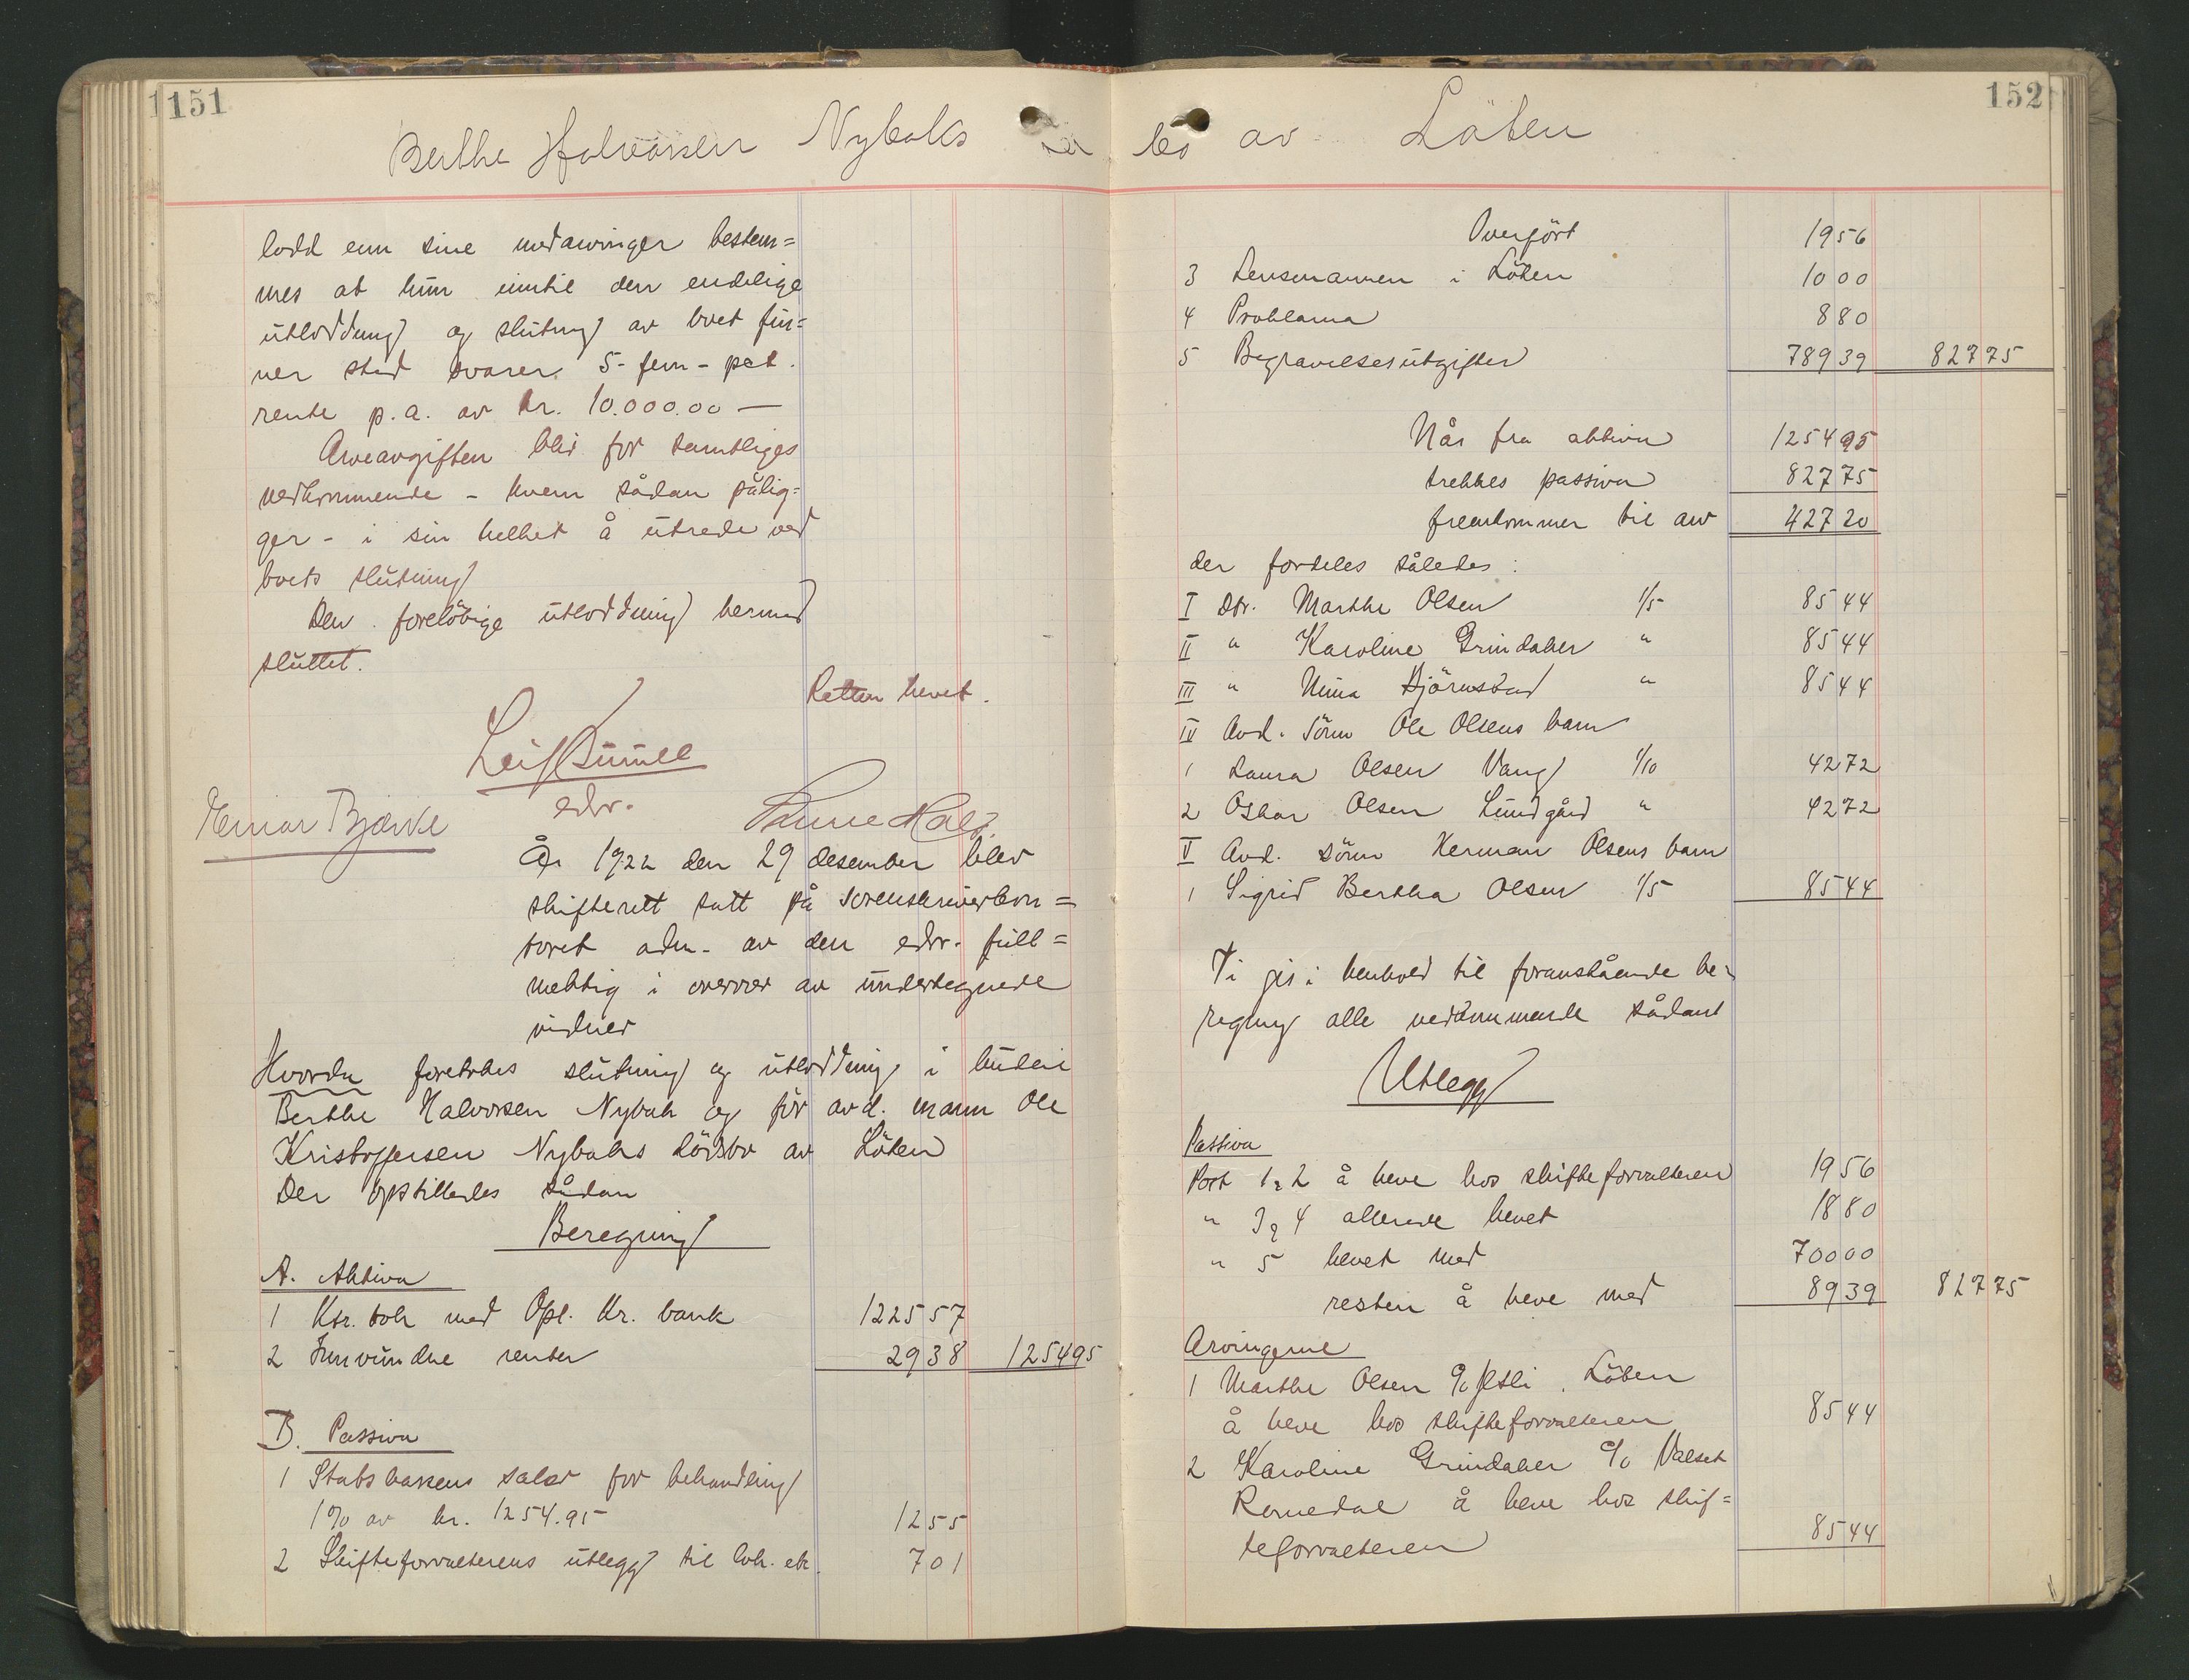 151
Berthe Halvorsen Nybaks
lodd enn sine medarvinger bestem=
mes at hun inntil den endelige
utlodding og slutning av boet fin=
ner sted svarer 5 - fem - pct.
rente p.a. av kr. 10.000.00 —
Arveavgiften blir for samtliges
vedkommende - hvem sådan pålig=
ger - i sin helhet å utrede ved
boets slutning
Den foreløbige utlodding hermed
sluttet.
Retten hevet.
Leif
edsv.
Einar Bjørke
År 1922 den 29 desember blev
skifterett satt på sorenskriverkon=
toret adm. av den edsv. full=
mektig i overvær av undertegnede
vidner
Hvorda foretokes slutning og utlodding i
Berthe Halvorsen Nybak og før avd. mann Ole
Kristoffersen Nybaks dödsbo av Löten
Der opstilledes sådan
Beregning
A. Aktiva
1 Ktr. bok med Opl. Kr. bank 1225 57
2 Innvundne renter 29 38 1254 95
B. Passiva
1 Statskassens salær for behandling
1% av kr. 1254.95 12 55
2 Skifteforvalterens utlegg til bok. etc. 7 01
152
bo av Löten
Overfört 19 56
3 Lensmannen i Löten 10 00
4 Proklama 8 80
5 Begravelsesutgifter 789 39 827 75
Når fra aktiva 1254 95
trekkes passiva 827 75
fremkommer til arv 427 20
der fordeles således:
I Dtr. Marthe Olsen 1/5 85 44
II " Karoline Grindaker " 85 44
III " Nina Hjörnstad " 85 44
IV Avd. Sönn Ole Olsens barn
1 Laura Olsen Vang 1/10 42 72
2 Oskar Olsen Lundgård " 42 72
V Avd. sönn Herman Olsens barn
1 Sigrid Bertha Olsen 1/5 85 44
Ti gis i henhold til foranstående be=
regning alle vedkommende sådant
Utlegg
Passiva
Post 1 & 2 å heve hos skifteforvalteren 19 56
" 3 & 4 allerede hevet 18 80
" 5 hevet med 700 00
resten å heve med 89 39 827 75
Arvingerne
1 Marthe Olsen c/o Löten
å heve hos skifteforvalteren 85 44
2 Karoline Grindaker c/o Valset
Romedal å heve hos skif=
teforvalteren 85 44